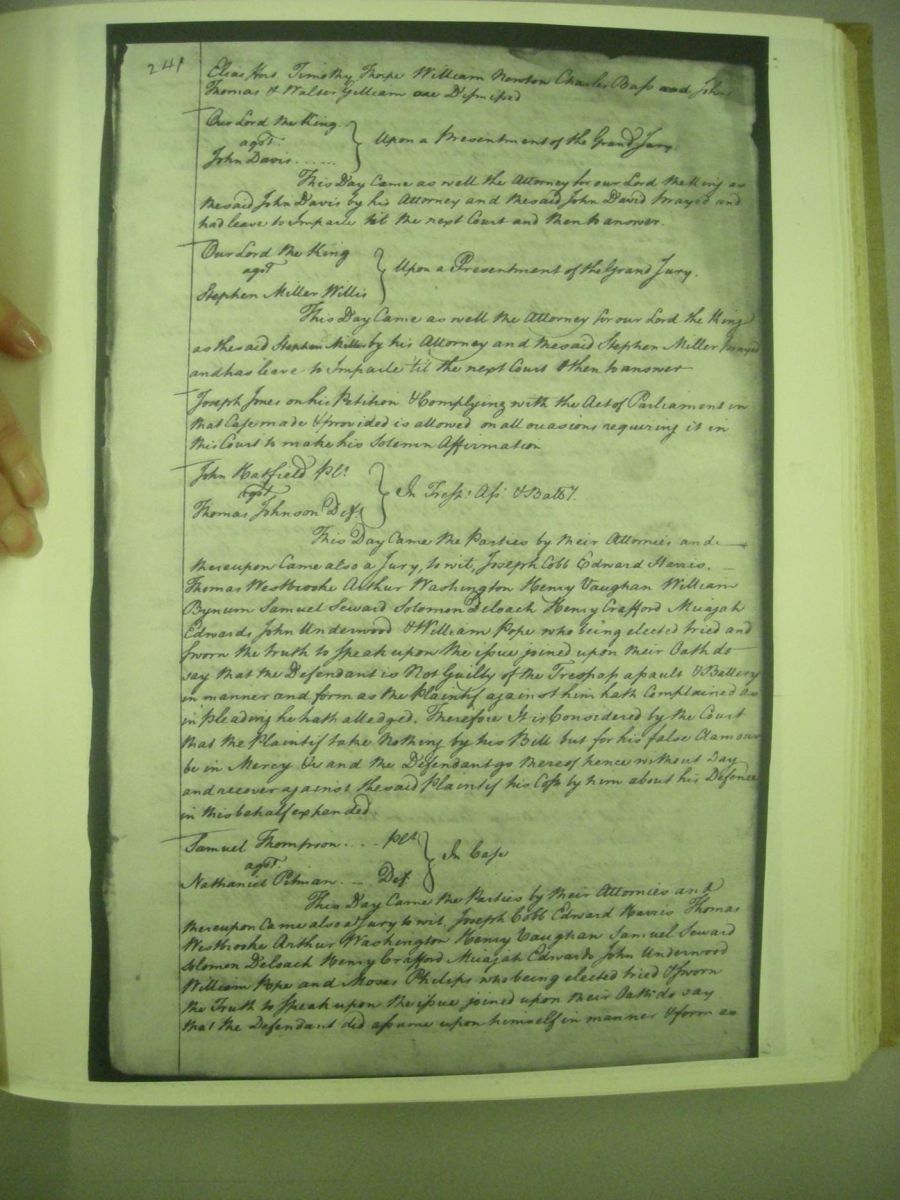 241
Elias Hors Timothy Thorpe William Newton Charles Bass and John
Thomas & Walter Gilliam are Dismissed
Our Lord the King
agst
John Davis ......
Upon a Presentment of the Grand Jury.
This Day Came as well the Attorney for our Lord the King as
the said John Davis by his Attorney and the said John David prayed and
had leave to Imparle till the next Court and then to answer.
Our Lord the King
agst
Stephen Miller Willis
Upon a Presentment of the Grand Jury.
This Day Came as well the Attorney for our Lord the King
as the said Stephen Miller by his Attorney and the said Stephen Miller prayed
and has leave to Imparle 'til the next Court & then to answer
Joseph Jones on his Petition & Complying with the Act of Parliament in
that Case made & provided is allowed on all occasions requiring it in
this Court to make his Solemn Affirmation
John Hatfield plt
agst
Thomas Johnson Deft
In Tresps Ass & Batty.
This Day Came the Parties by their Attornies and
thereupon Came also a Jury, to wit, Joseph Cobb Edward Harris.
Thomas Westbrooke Arthur Washington Henry Vaughan William
Bynum Samuel Seward Solomon Deloach Henry Crafford Micajah
Edwards John Underwood & William Pope who being elected tried and
sworn the truth to speak upon the issue joined upon their Oath do
say that the Defendant is Not Guilty of the Trespass assault & Battery
in manner and form as the Plaintif against him hath Complained as
in pleading he hath alledged. Therefore It is Considered by the Court
that the Plaintif take Nothing by his Bill but for his false Clamour
be in Mercy &c and the Defendant go thereof hence without Day
and recover against the said Plaintif his Costs by him about his Defence
in this behalf expended.
Samuel Thompson .... plt
agst
Nathaniel Pitman ... Deft
In Case
This Day Came the Parties by their Attornies and
thereupon Came also a Jury to wit. Joseph Cobb Edward Harris Thomas
Westbrooke Arthur Washington Henry Vaughan Samuel Seward
Solomon Deloach Henry Crafford Micajah Edwards John Underwood
William Pope and Moses Philips who being elected tried & sworn
the Truth to speak upon the issue joined upon their Oath do say
that the Defendant did assume upon himself in manner & form as